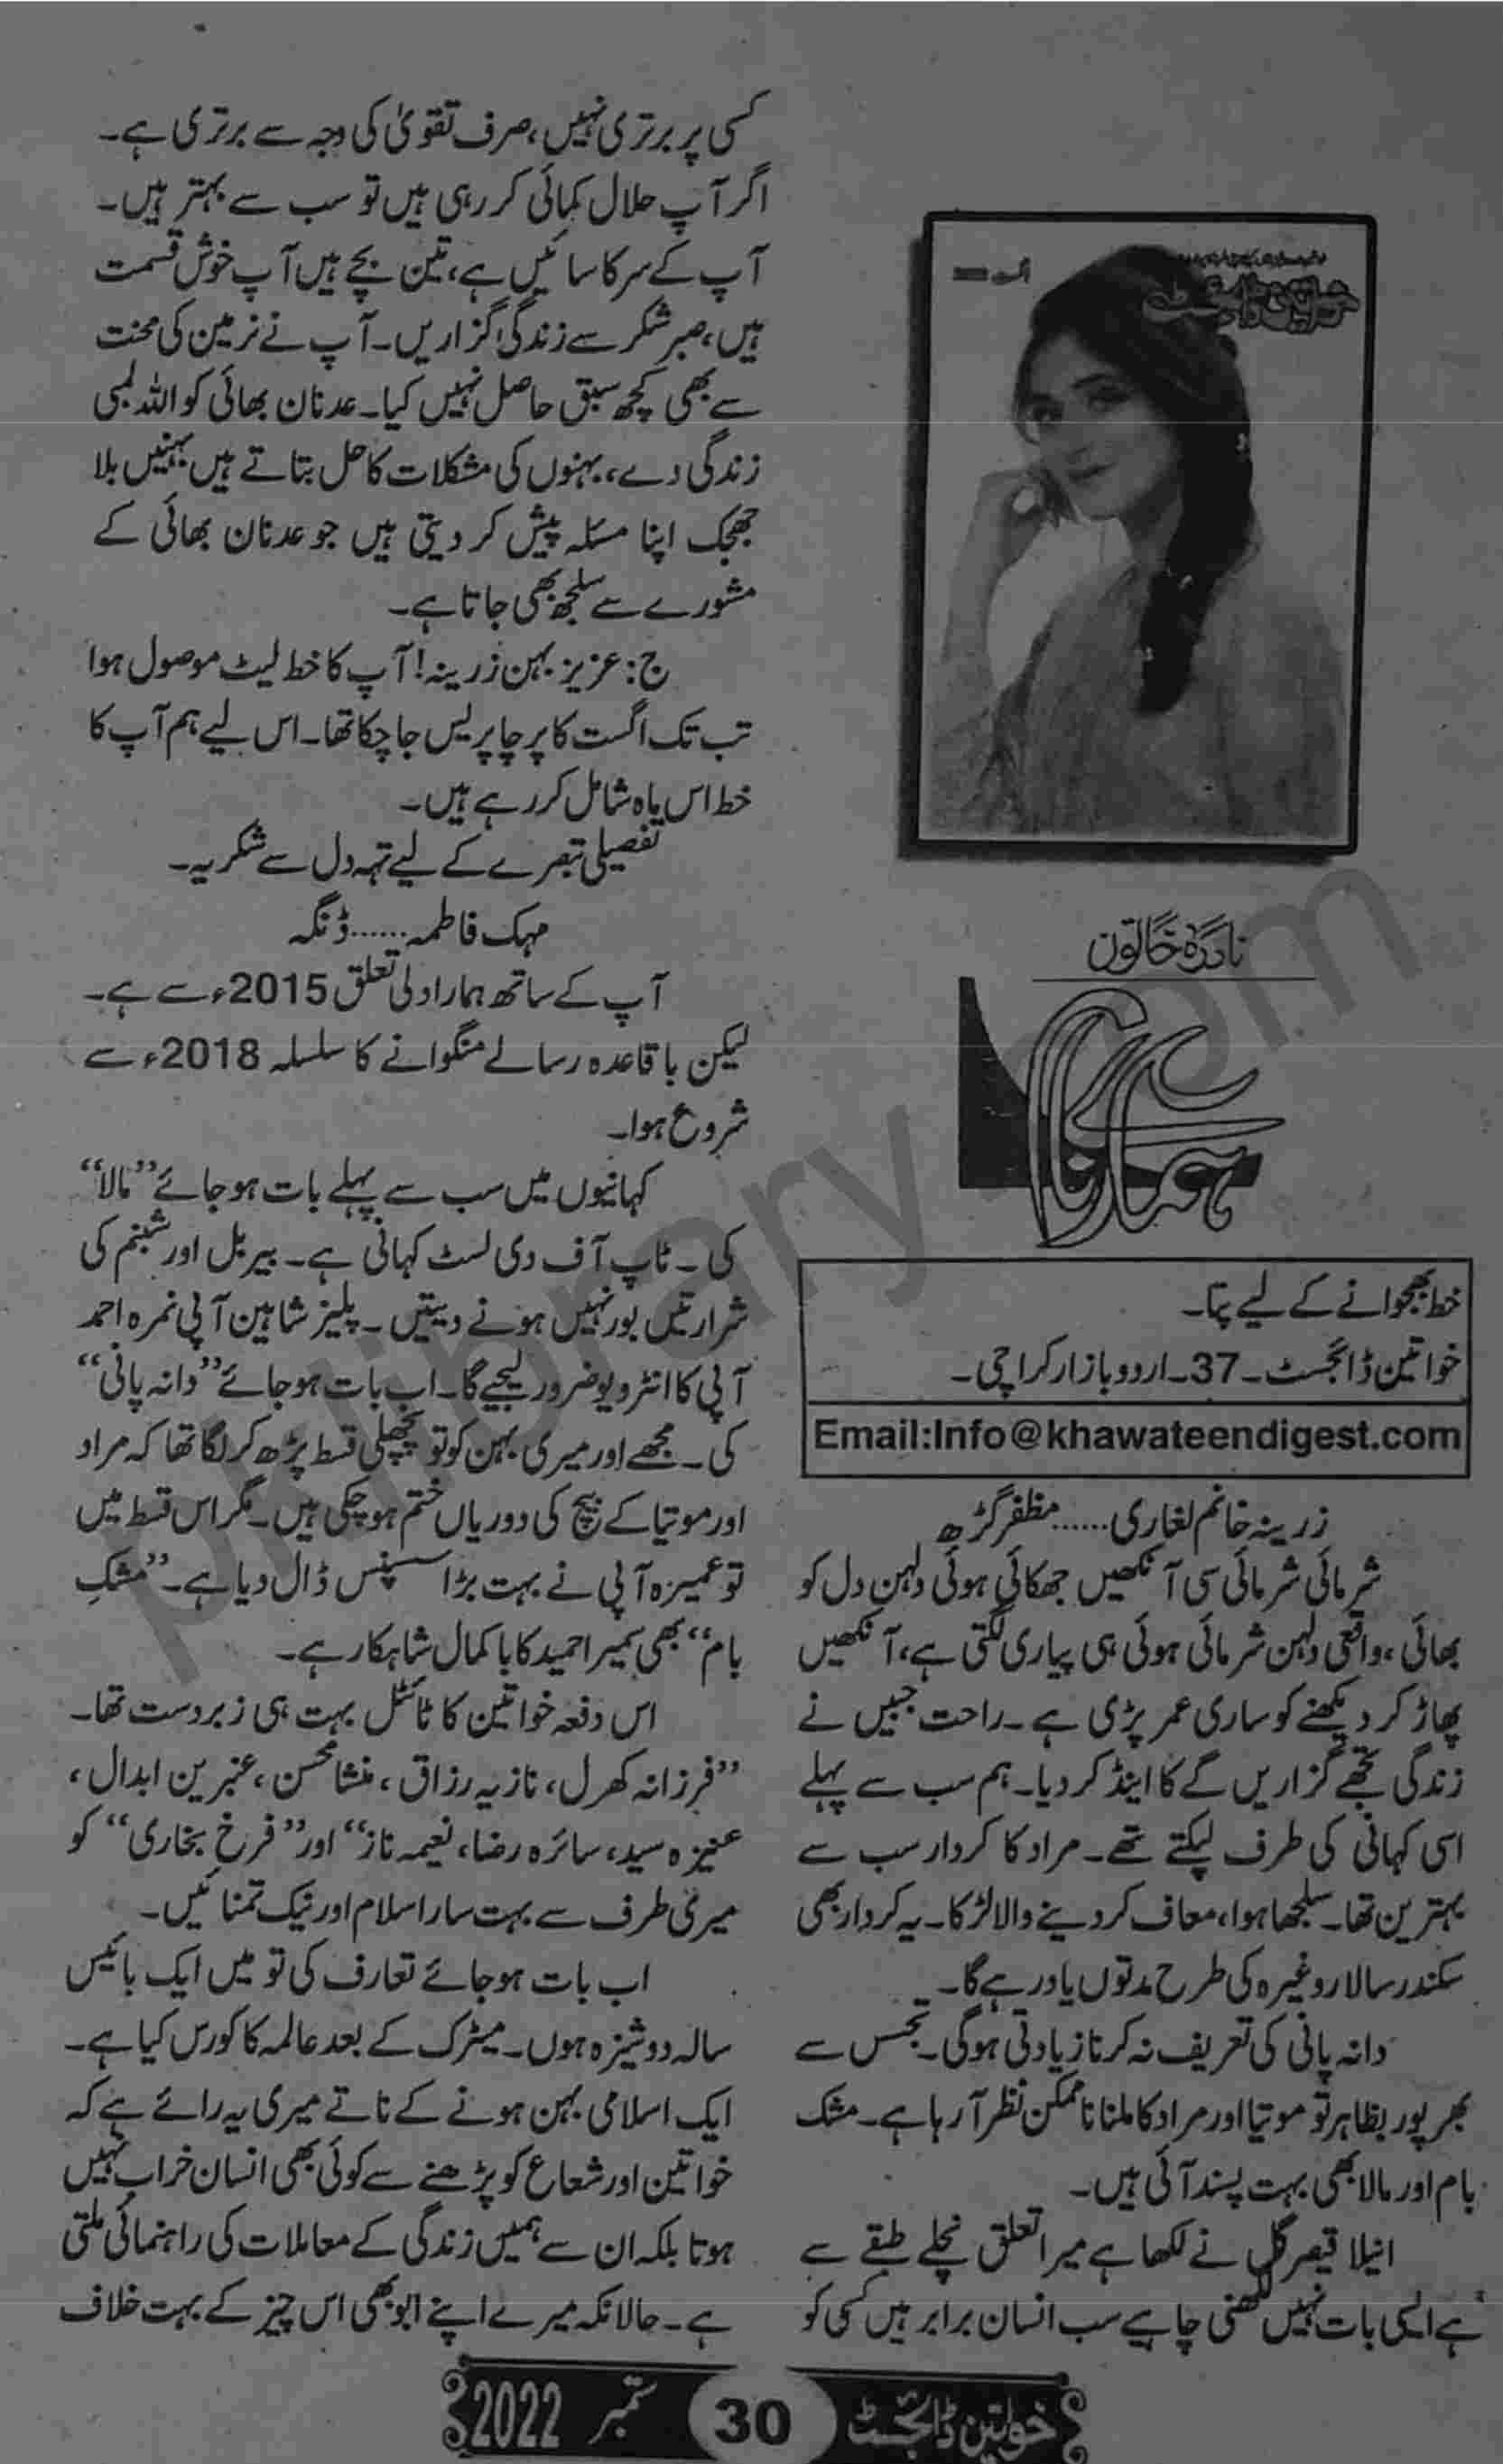 خواتین ڈائجسٹ
نادرہ خاتون
ہمارے نام
خط بھجوانے کے لیے پتا۔
خواتین ڈائجسٹ۔ 37۔ اردو بازار کراچی۔
Email:Info@khawateendigest.com
زرینہ خانم لغاری......مظفر گڑھ
شرمائی شرمائی سی آنکھیں جھکائی ہوئی دلہن دل کو
بھائی، واقعی دلہن شرمائی ہوئی ہی پیاری لگتی ہے، آنکھیں
پھاڑ کر دیکھنے کو ساری عمر پڑی ہے۔ راحت جبیں نے
زندگی تجھے گزاریں گے کا اینڈ کر دیا۔ ہم سب سے پہلے
اسی کہانی کی طرف لپکتے تھے۔ مراد کا کردار سب سے
بہترین تھا۔ سلجھا ہوا، معاف کر دینے والا لڑکا۔ یہ کردار بھی
سکندر سالار وغیرہ کی طرح مدتوں یاد رہے گا۔
دانہ پانی کی تعریف نہ کرنا زیادتی ہوگی۔ تجسس سے
بھرپور بظاہر تو موتیا اور مراد کا ملنا ناممکن نظر آ رہا ہے۔ مشک
بام اور مالا بھی بہت پسند آئی ہیں۔
انیلا قیصر گل نے لکھا ہے میرا تعلق نچلے طبقے سے
ہے ایسی بات نہیں لکھنی چاہیے سب انسان برابر ہیں کسی کو
کسی پر برتری نہیں، صرف تقویٰ کی وجہ سے برتری ہے۔
اگر آپ حلال کمائی کر رہی ہیں تو سب سے بہتر ہیں۔
آپ کے سر کا سائیں ہے، تین بچے ہیں آپ خوش قسمت
ہیں، صبر شکر سے زندگی گزاریں۔ آپ نے نرمین کی محنت
سے بھی کچھ سبق حاصل نہیں کیا۔ عدنان بھائی کو اللہ لمبی
زندگی دے، بہنوں کی مشکلات کا حل بتاتے ہیں بہنیں بلا
جھجک اپنا مسئلہ پیش کر دیتی ہیں جو عدنان بھائی کے
مشورے سے سلجھ بھی جاتا ہے۔
ج: عزیز بہن زرینہ! آپ کا خط لیٹ موصول ہوا
تب تک اگست کا پرچا پریس جا چکا تھا۔ اس لیے ہم آپ کا
خط اس ماہ شامل کر رہے ہیں۔
تفصیلی تبصرے کے لیے تہہ دل سے شکریہ۔
مہک فاطمہ......ڈنگہ
آپ کے ساتھ ہمارا دلی تعلق 2015ء سے ہے۔
لیکن باقاعدہ رسالے منگوانے کا سلسلہ 2018ء سے
شروع ہوا۔
کہانیوں میں سب سے پہلے بات ہو جائے ”مالا“
کی۔ ٹاپ آف دی لسٹ کہانی ہے۔ بیربل اور شبنم کی
شرارتیں بور نہیں ہونے دیتیں۔ پلیز شاہین آپی نمرہ احمد
آپی کا انٹرویو ضرور لیجیے گا۔ اب بات ہو جائے ”دانہ پانی“
کی۔ مجھے اور میری بہن کو تو پچھلی قسط پڑھ کر لگا تھا کہ مراد
اور موتیا کے بیچ کی دوریاں ختم ہو چکی ہیں۔ مگر اس قسط میں
تو عمیزہ آپی نے بہت بڑا سسپنس ڈال دیا ہے۔ ”مشکِ
بام“ بھی سمیرا حمید کا باکمال شاہکار ہے۔
اس دفعہ خواتین کا ٹائٹل بہت ہی زبردست تھا۔
”فرزانہ کھرل، نازیہ رزاق، منشا محسن، عنبرین ابدال،
عنیزہ سید، سائرہ رضا، نعیمہ ناز“ اور ”فرخ بخاری“ کو
میری طرف سے بہت سارا سلام اور نیک تمنائیں۔
اب بات ہو جائے تعارف کی تو میں ایک بائیس
سالہ دوشیزہ ہوں۔ میٹرک کے بعد عالمہ کا کورس کیا ہے۔
ایک اسلامی بہن ہونے کے ناتے میری یہ رائے ہے کہ
خواتین اور شعاع کو پڑھنے سے کوئی بھی انسان خراب نہیں
ہوتا بلکہ ان سے ہمیں زندگی کے معاملات کی راہنمائی ملتی
ہے۔ حالانکہ میرے اپنے ابو بھی اس چیز کے بہت خلاف
خواتین ڈائجسٹ 30 ستمبر 2022
pklibrary.com